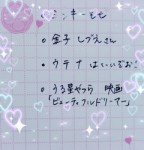 ミンキーモモ
○ 金子しづえさん
○ ウテナ はいいぞお!
○ うる星やつら 映画
「ビューティフルドリーマー」